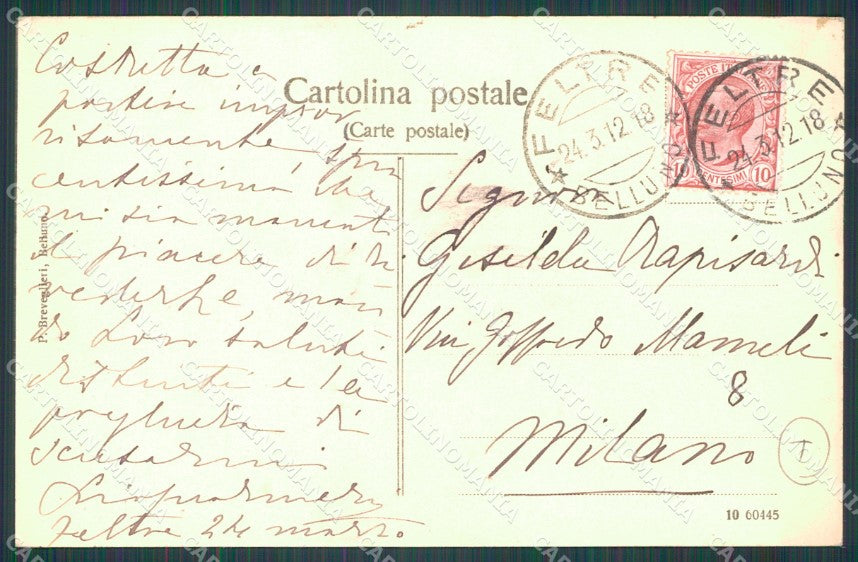 Cartolina postale
(Carte postale)
Costretta a
partire improv
visamente, spia
centissima che
mi sia mancato
il piacere di ri
vederle, man
do loro saluti
distinti e la
preghiera di
scusarmi
Feltre 24 marzo
P. Breveglieri, Belluno.
FELTRE
24.3.12.18
BELLUNO
FELTRE
24.3.12.18
BELLUNO
POSTE
10 CENTESIMI 10
Signora
Giselda Rapisardi
Via Goffredo Mameli
8
Milano
T
10 60445
CARTOLINOMANIA